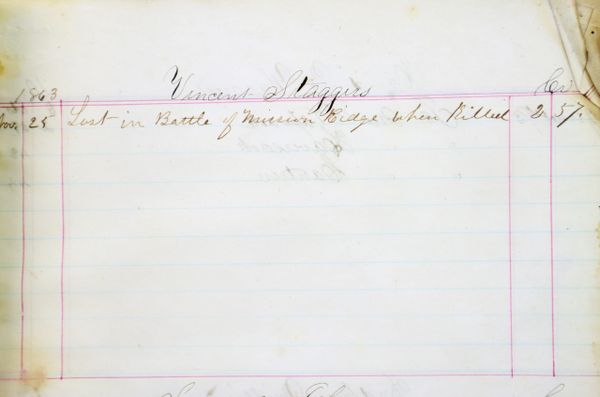 1863 Vincent Staggers Cr
Nov. 25 Lost in Battle of Mission Ridge when Killed 2 57.